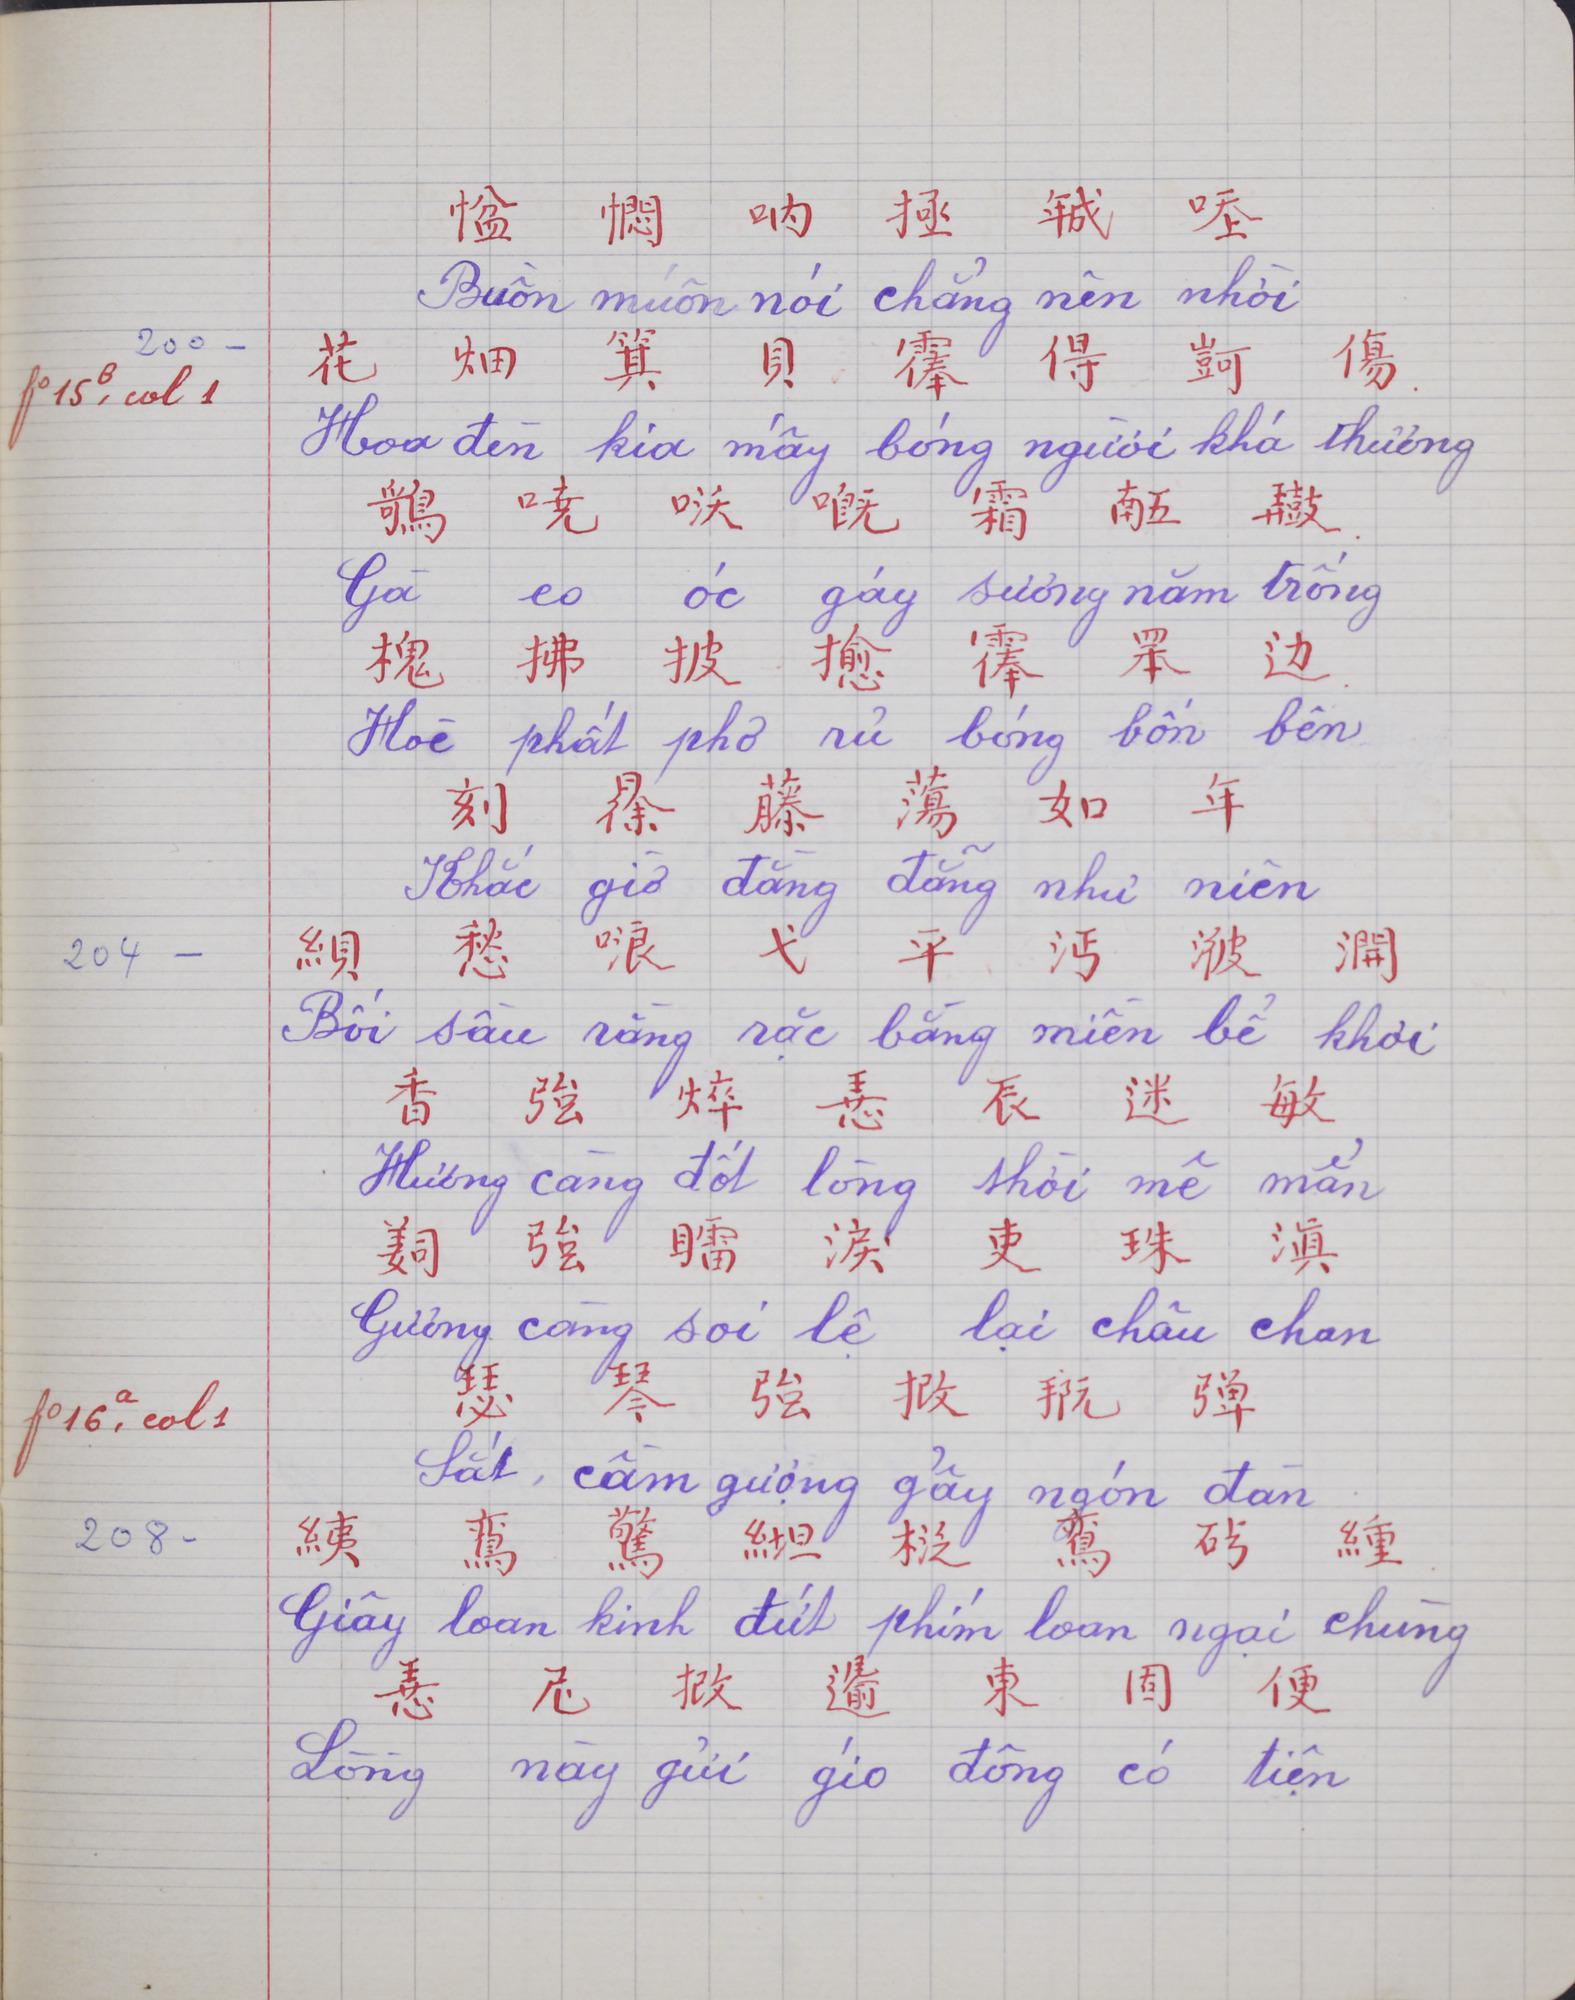 湓 憫 吶 拯 𢧚 𠳒
Buồn muôn nói chẳng nên nhời
200 –
花 畑 箕 貝 䨦 得 可 傷
fº 15ᴮ, col 1
Hoa đèn kia mấy bóng người khá thương
鵸 哓 喅 嘅 霜 𠄼 𪔠
Gà eo óc gáy sương năm trống
槐 拂 披 𢷀 䨦 罘 边
Hoè phất phơ rủ bóng bốn bên
刻 𣇞 藤 蕩 如 年
Khắc giờ đằng đẵng như niên
204 –
䋦 愁 哴 弋 平 沔 㴜 濶
Bối sầu ràng rặc bằng miền bể khơi
香 強 焠 𢚸 辰 迷 敏
Hương càng đốt lòng thời mê mẩn
𦎛 強 𥋸 淚 吏 珠 滇
Gương càng soi lệ lại châu chan
瑟 琴 強 㧡 𢭮 弹
fº 16ᵃ, col 1
Sắt, cầm gượng gẩy ngón đàn
208 –
𦀊 鸞 驚 䋎 柉 鸞 碍 緟
Giây loan kinh đứt phím loan ngại chùng
𢚸 尼 㧡 𨗺 東 固 便
Lòng này gửi gío đông có tiện